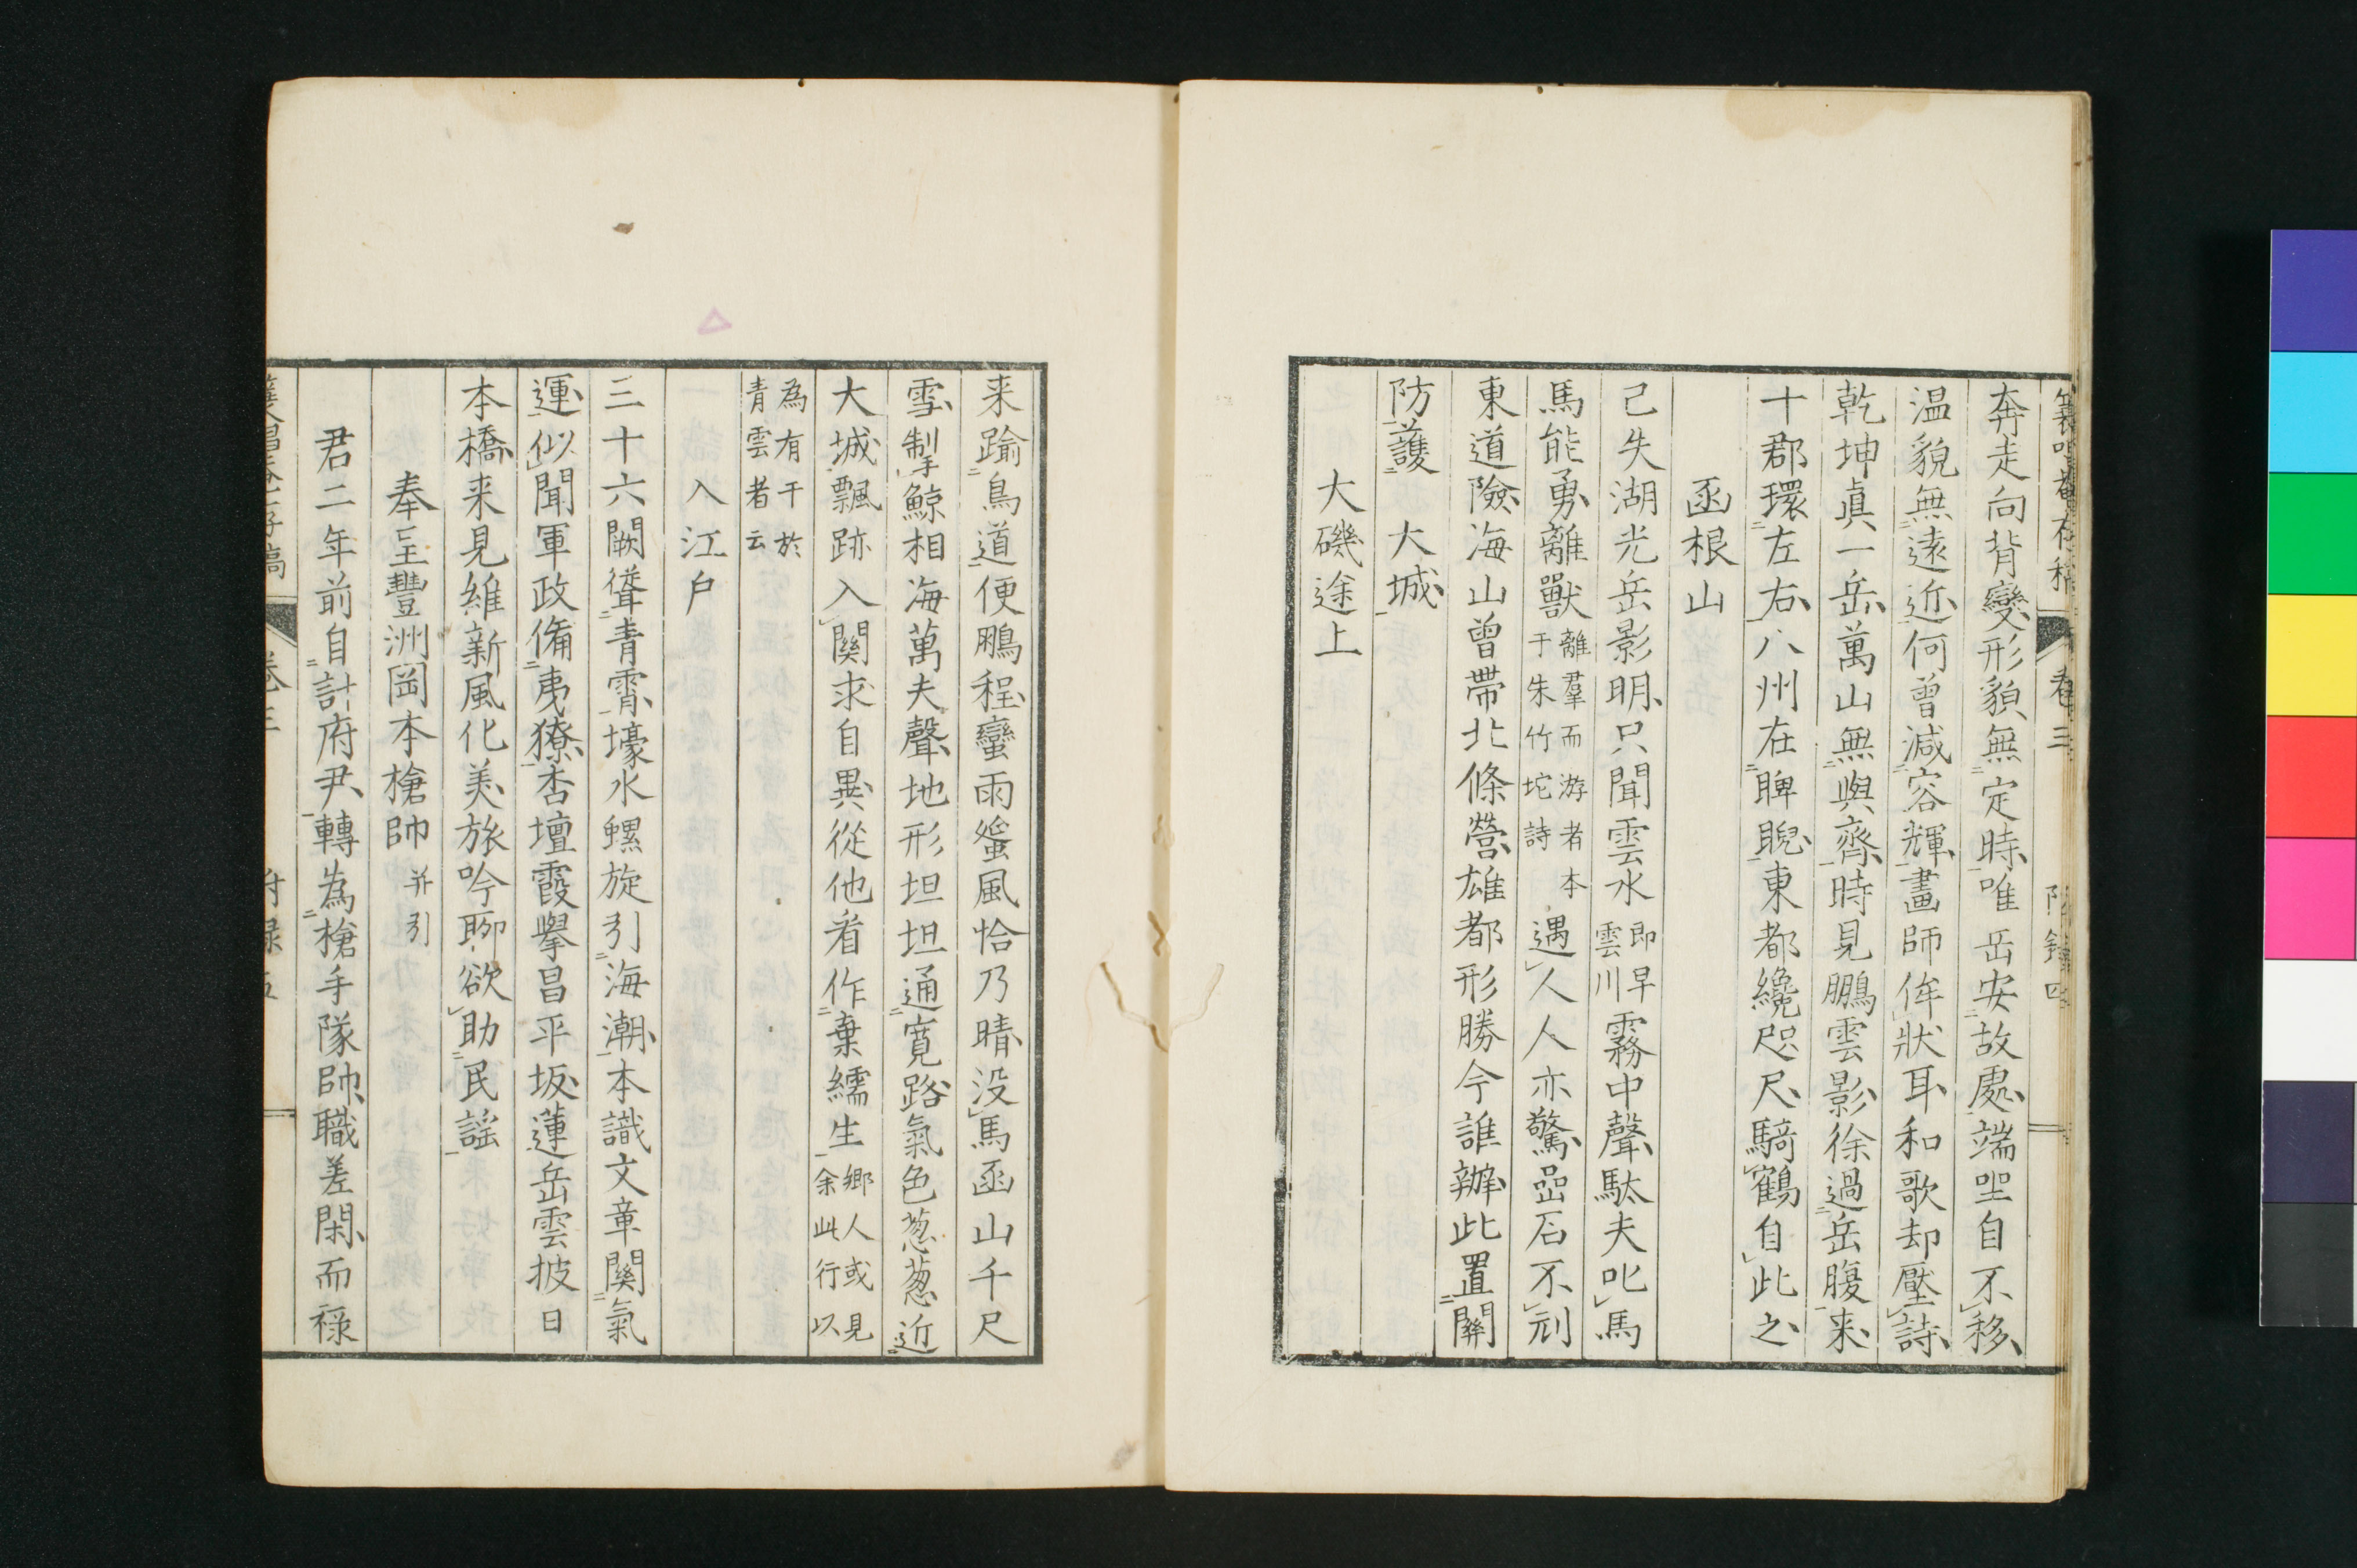 卷三
奔走向背變形貌無定時唯岳安故處端坐自不移
温貌無遠近何曾減容輝畫師侔狀耳和歌却壓詩
乾坤眞一岳萬山無與齊時見鵬雲影徐過岳腹来
十郡環左右八州在睥睨東都纔咫尺騎鶴自此之
函根山
已失湖光岳影明只聞雲水即早雲川霧中聲駄夫叱馬
馬能勇離獸離羣而游者本于朱竹坨詩遇人人亦驚嵒石不刓
東道險海山曾帶北條營雄都形勝今誰辦此置關
防護大城
大磯途上
来踰鳥道便鵬程蠻雨蜑風恰乃晴没馬函山千尺
雪掣鯨相海萬夫聲地形坦坦通寛路氣色葱葱近
大城飄跡入關求自異從他看作棄繻生鄉人或見余此行以
為有干於青雲者云
入江户
三十六闕聳青霄壕水螺旋引海潮本識文章關氣
運似聞軍政備夷獠杏壇霞擧昌平坂蓮岳雲披日
本橋来見維新風化美旅吟聊欲助民謠
奉呈豐洲岡本槍帥并引
君二年前自計府尹轉為槍手隊帥職差閑而禄